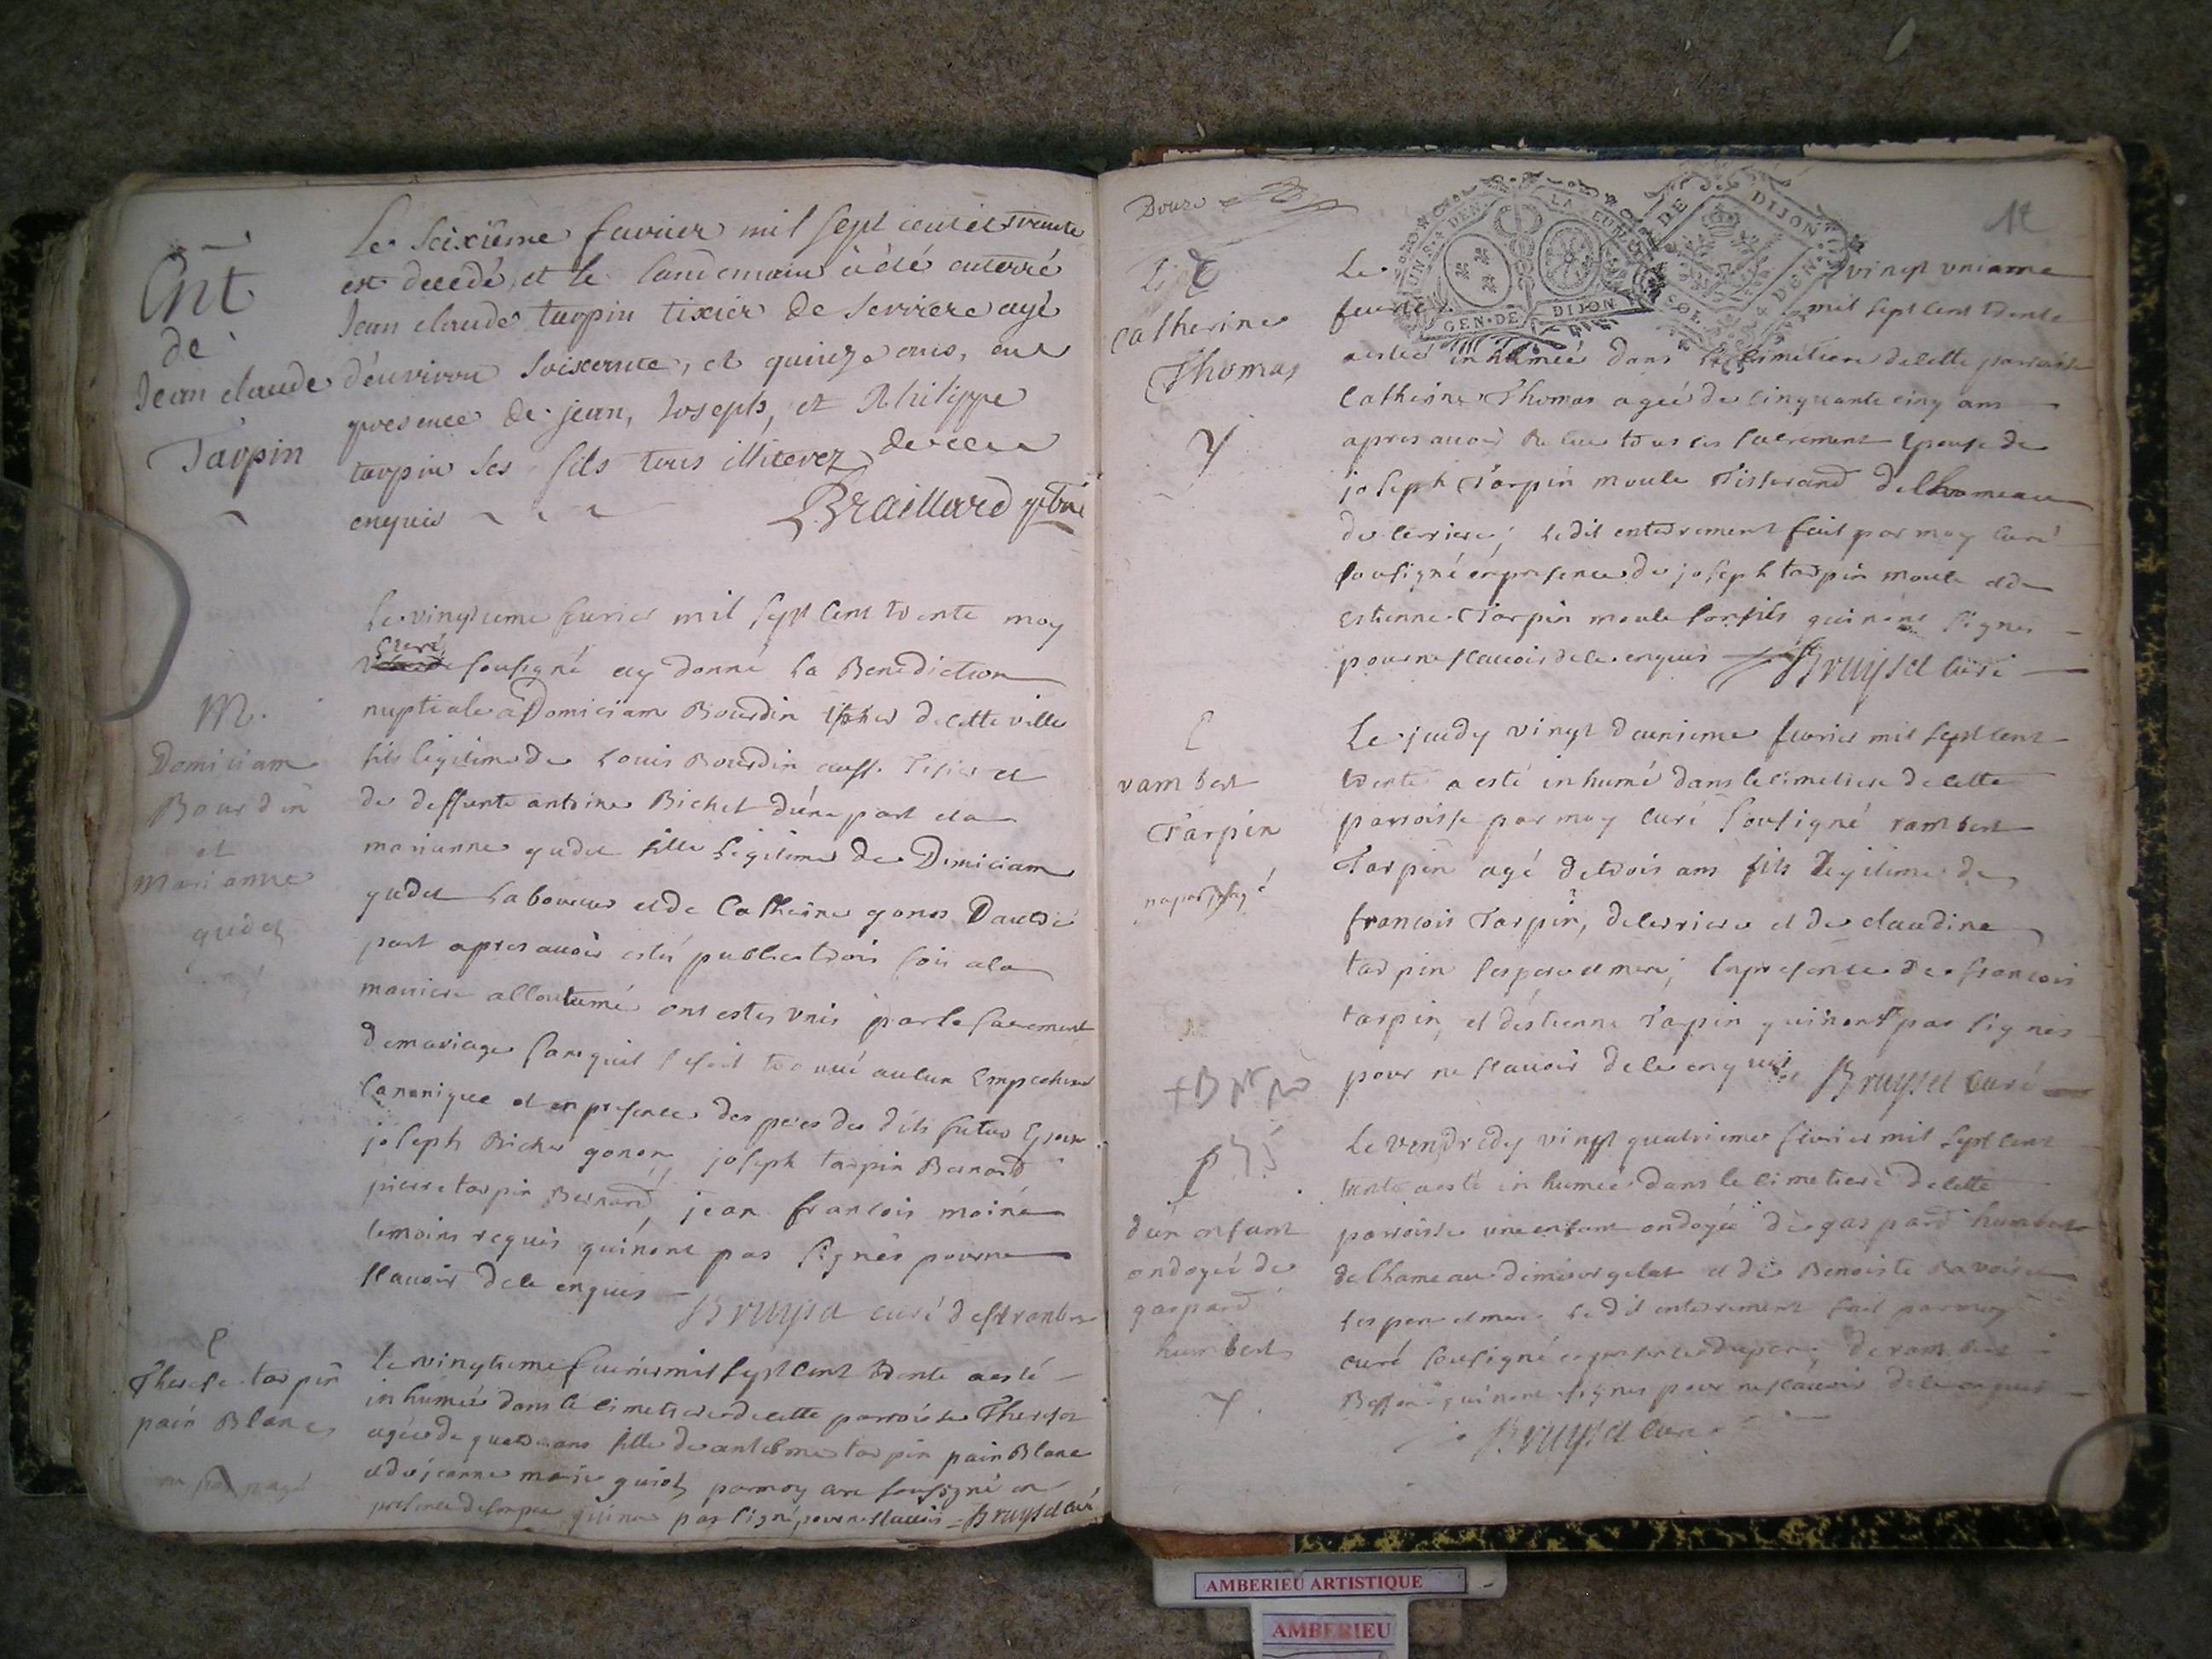 Ent
de
Jean claude
Tarpin
Le Seixième fevrier mil sept cent et trente
est decedé, et le landemain à été enterré
Jean claude tarpin tixier de Serriere agé
d'environ soixente, et quinze ans, en
presence de jean, Joseph, et Philippe
tarpin ses fils tous illiterez de ce
enquis Braillard
M.
Domiciam
Bourdin
et
Marianne
gudet
Le vingtieme fevrier mil sept cent trente moy
Curé
sousigné ay donné la Benediction
nuptiale a Domiciam Bourdin de cette ville
fils legitime de Louis Bourdin aussi Tisier et
de deffunte antoine Bichet d'une part et a
marianne gudet fille legitime de Dimiciam
gudet Laboureur et de Catherine gonon Dautre
part apres avoir esté publies trois fois a la
maniere accoutumé ont estes unis par le sacrement
de mariage sans quil se soit trouvé aucun Empechement
Canonique et en presence des peres des dits futur Epoux
joseph Bichet gonon, joseph tarpin Bernard
pierre tarpin Bernard, jean francois moine
temoins requis qui nont pas signés pour ne
scavoir de le enquis
Bruyset curé
Therese tarpin
pain Blanc
na pas payé
Le vingtieme fevrier mil sept cent trente a esté
inhumée dans le cimetiere de cette parroisse Therese
agée de quatre ans fille de antelme tarpin pain Blanc
et de jeanne marie guiot par moy curé sousigné en
presence de son pere qui na pas signé pour ne scavoir Bruyset curé
Douze
12
Catherine
Thomas
Le vingt unieme
fevrier mil sept cent trente
GEN. DE DIJON
DE DIJON
a esté inhumée dans le cimetiere de cette parroisse
Catherine Thomas agée de cinquante cinq ans
apres avoir Receu tous les sacrement Epouse de
joseph Tarpin moule Tisserand de lhameau
de serriere; le dit enterrement fait par moy curé
sousigné en presence de joseph tarpin moule et de
estienne Tarpin moule son fils qui nont signes
pour ne scavoir de le enquis Bruyset curé
rambert
Tarpin
na pas payé
Le judy vingt deuxieme fevrier mil sept cent
trente a esté inhumé dans le cimetiere de cette
parroisse par moy curé sousigné rambert
Tarpin agé de trois ans fils legitime de
francois Tarpin, de serriere et de claudine
tarpin ses pere et mere; en presence de francois
tarpin, et d'estienne Tarpin qui nont pas signes
pour ne scavoir de le enquis Bruyset curé
dun enfant
ondoyée de
gaspard
humbert
Le vendredy vingt quatrieme fevrier mil sept cent
trente a esté inhumée dans le cimetiere de cette
parroisse une enfant ondoyée de gaspard humbert
de lhameau et de Benoiste
ses pere et mere le dit enterrement fait par moy
curé sousigné en presence du pere, de rambert
qui nont signes pour ne scavoir de le enquis
Bruyset curé
AMBERIEU ARTISTIQUE
AMBERIEU